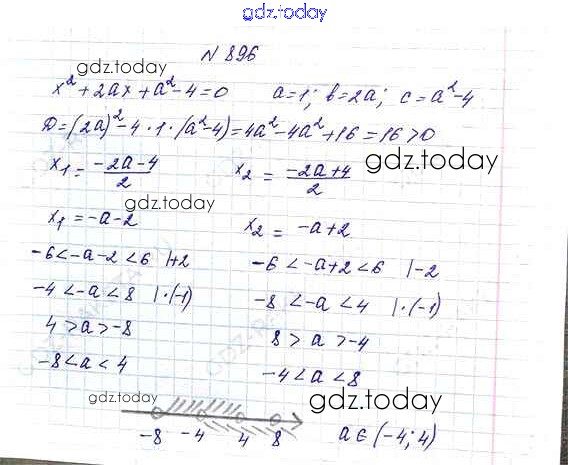 gdz.today
N 896
gdz.today
x² + 2ax + a² - 4 = 0   a = 1; b = 2a; c = a² - 4
D = (2a)² - 4 · 1 · (a² - 4) = 4a² - 4a² + 16 = 16 > 0
gdz.today
x₁ = (-2a - 4)/2   x₂ = (-2a + 4)/2
gdz.today
x₁ = -a - 2   x₂ = -a + 2
-6 < -a - 2 < 6 | +2   -6 < -a + 2 < 6 | -2
-4 < -a < 8 | · (-1)   -8 < -a < 4 | · (-1)
4 > a > -8   8 > a > -4
-8 < a < 4   -4 < a < 8
gdz.today   gdz.today
-8 -4 4 8   a ∈ (-4; 4)
gdz.today